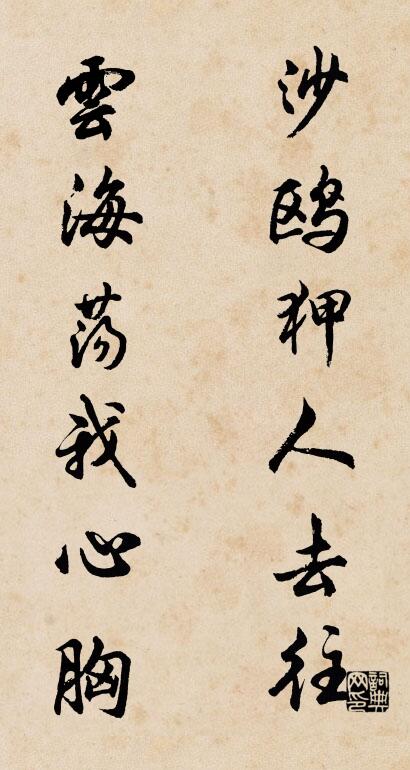 沙鸥狎人去往
雲海荡我心胸
詞典网印